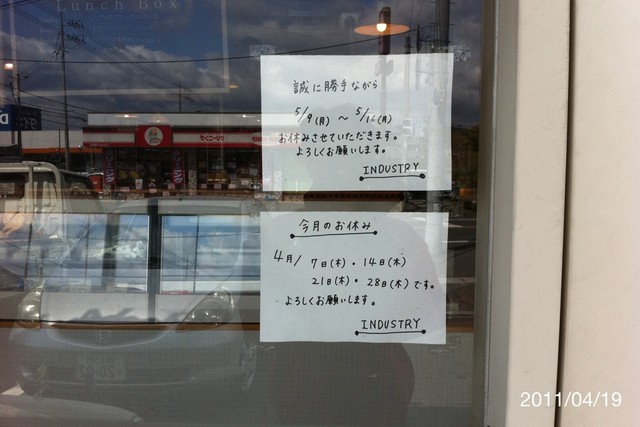 Lunch Box
誠に勝手ながら
5/9(月) 〜 5/16(月)
お休みさせていただきます。
よろしくお願いします。
INDUSTRY
今月のお休み
4月/ 7日(木)・14日(木)
21日(木)・28日(木)です。
よろしくお願いします。
INDUSTRY
2011/04/19